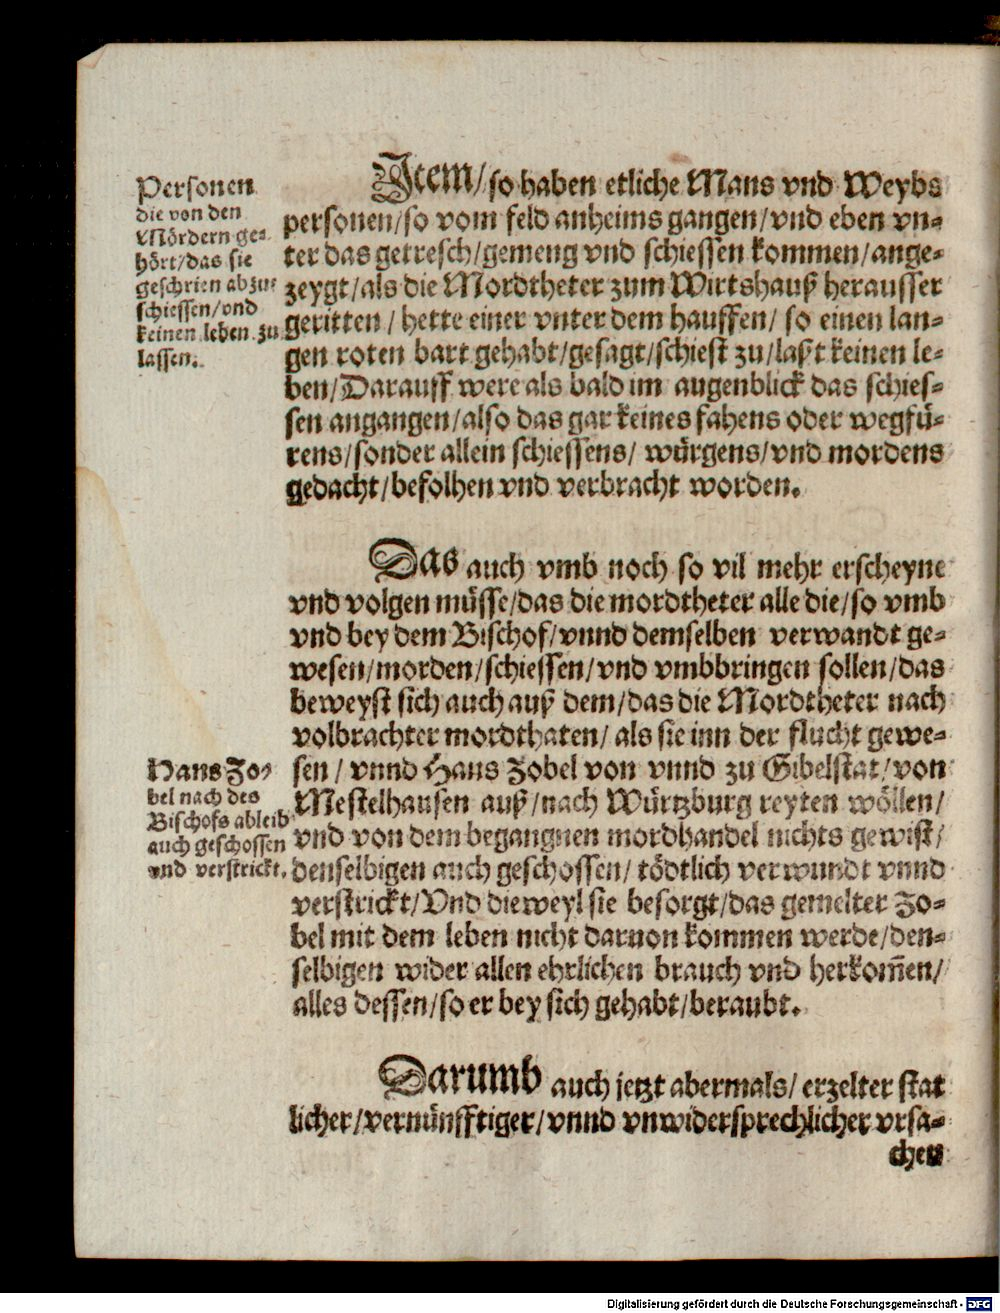 Personen
die von den
Mördern ge-
hört/das sie
geschrien abzu-
schiessen/vnd
keinen leben zu
lassen.
Item/so haben etliche Mans vnd Weybs
personen/so vom feld anheims gangen/vnd eben vn-
ter das getresch/gemeng vnd schiessen kommen/ange-
zeygt/als die Mordtheter zum Wirtshauß herausser
geritten/ hette einer vnter dem hauffen/ so einen lan-
gen roten bart gehabt/gesagt/schiest zu/laßt keinen le-
ben/Darauff were als bald im augenblick das schies-
sen angangen/also das gar keines fahens oder wegfü-
rens/sonder allein schiessens/ würgens/vnd mordens
gedacht/befolhen vnd verbracht worden.
Das auch vmb noch so vil mehr erscheyne
vnd volgen müsse/das die mordtheter alle die/so vmb
vnd bey dem Bischof/vnnd demselben verwandt ge-
wesen/morden/schiessen/vnd vmbbringen sollen/das
beweyst sich auch auß dem/das die Mordtheter nach
volbrachter mordthaten/ als sie inn der flucht gewe-
sen/ vnnd Hans Zobel von vnnd zu Gibelstat/von
Mestelhausen auß/nach Würtzburg reyten wöllen/
vnd von dem begangnen mordhandel nichts gewist/
denselbigen auch geschossen/ tödtlich verwundt vnnd
verstrickt/Vnd dieweyl sie besorgt/das gemelter Zo-
bel mit dem leben nicht daruon kommen werde/den-
selbigen wider allen ehrlichen brauch vnd herkom̃en/
alles dessen/so er bey sich gehabt/beraubt.
Hans Zo-
bel nach des
Bischofs ableib
auch geschossen
vnd verstrickt.
Darumb auch jetzt abermals/ erzelter stat
licher/vernünfftiger/vnnd vnwidersprechlicher vrsa-
chen
Digitalisierung gefördert durch die Deutsche Forschungsgemeinschaft - DFG